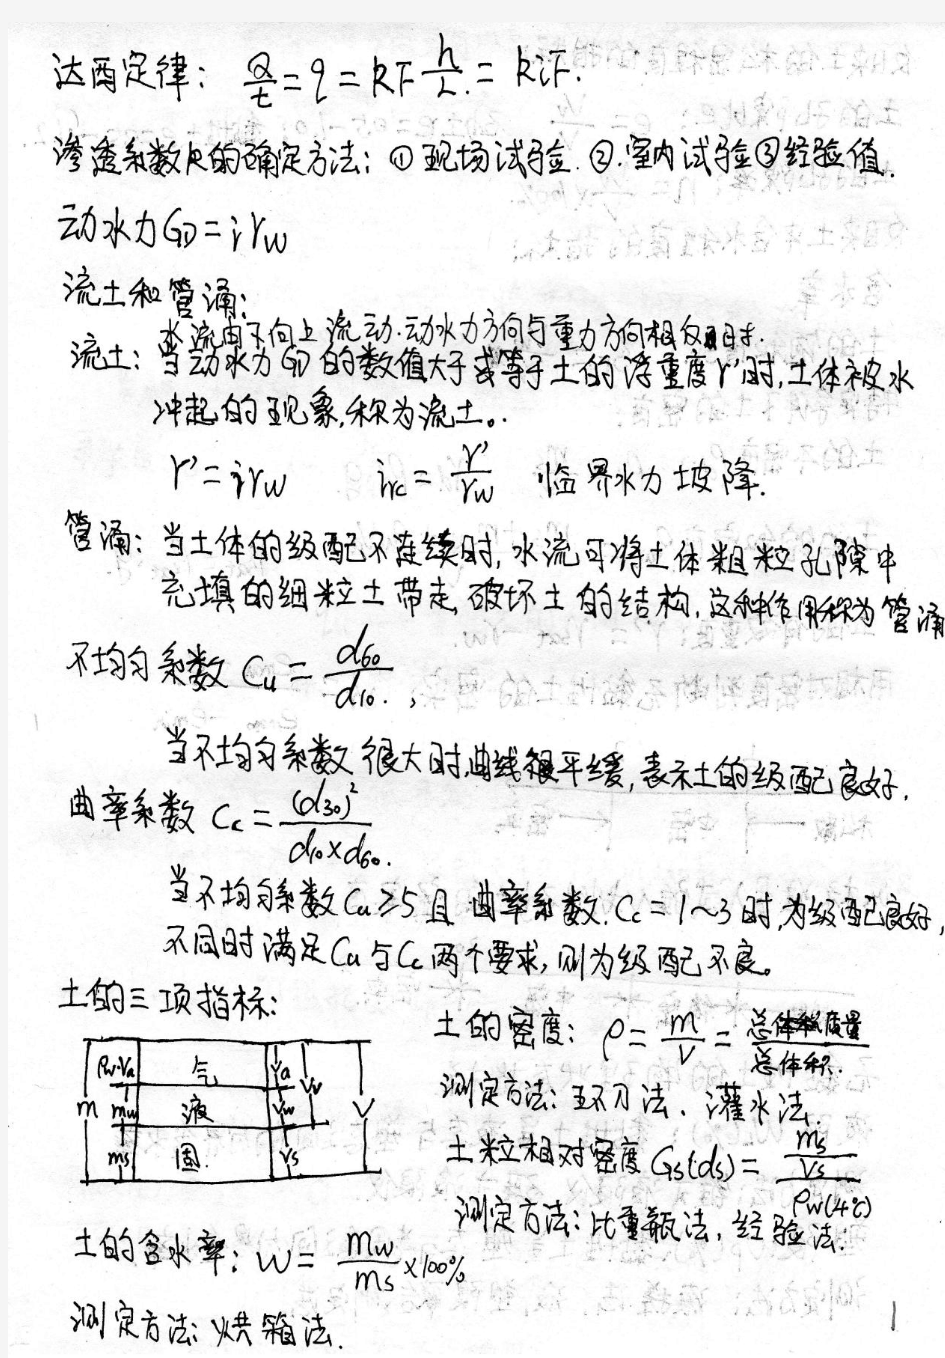 达西定律： Q/t = q = kF h/L = kiF.
渗透系数k的确定方法：①现场试验.②.室内试验③经验值.
动水力GD = iγw
流土和管涌：
水流由下向上流动.动水力方向与重力方向相反时.
流土：当动水力GD的数值大于或等于土的浮重度γ'时,土体被水
冲起的现象,称为流土。
γ' = iγw  irc = γ'/γw 临界水力坡降.
管涌：当土体的级配不连续时,水流可将土体粗粒孔隙中
充填的细粒土带走,破坏土的结构,这种作用称为管涌
不均匀系数 Cu = d60/d10.,
当不均匀系数很大时,曲线很平缓,表示土的级配良好.
曲率系数 Cc = (d30)²/d10×d60.
当不均匀系数Cu≥5且曲率系数.Cc=1~3时,为级配良好,
不同时满足Cu与Cc两个要求,则为级配不良。
土的三项指标：
土的密度：ρ = m/V = 总体积质量/总体积.
测定方法：环刀法、灌水法.
土粒相对密度 Gs(ds) = ms/Vs / ρw(4℃)
测定方法：比重瓶法,经验法.
m
ma
mw
ms
气
液
固.
Va
Vw
Vs
Vv
V
土的含水率：W = mw/ms ×100%
测定方法：烘箱法.
1